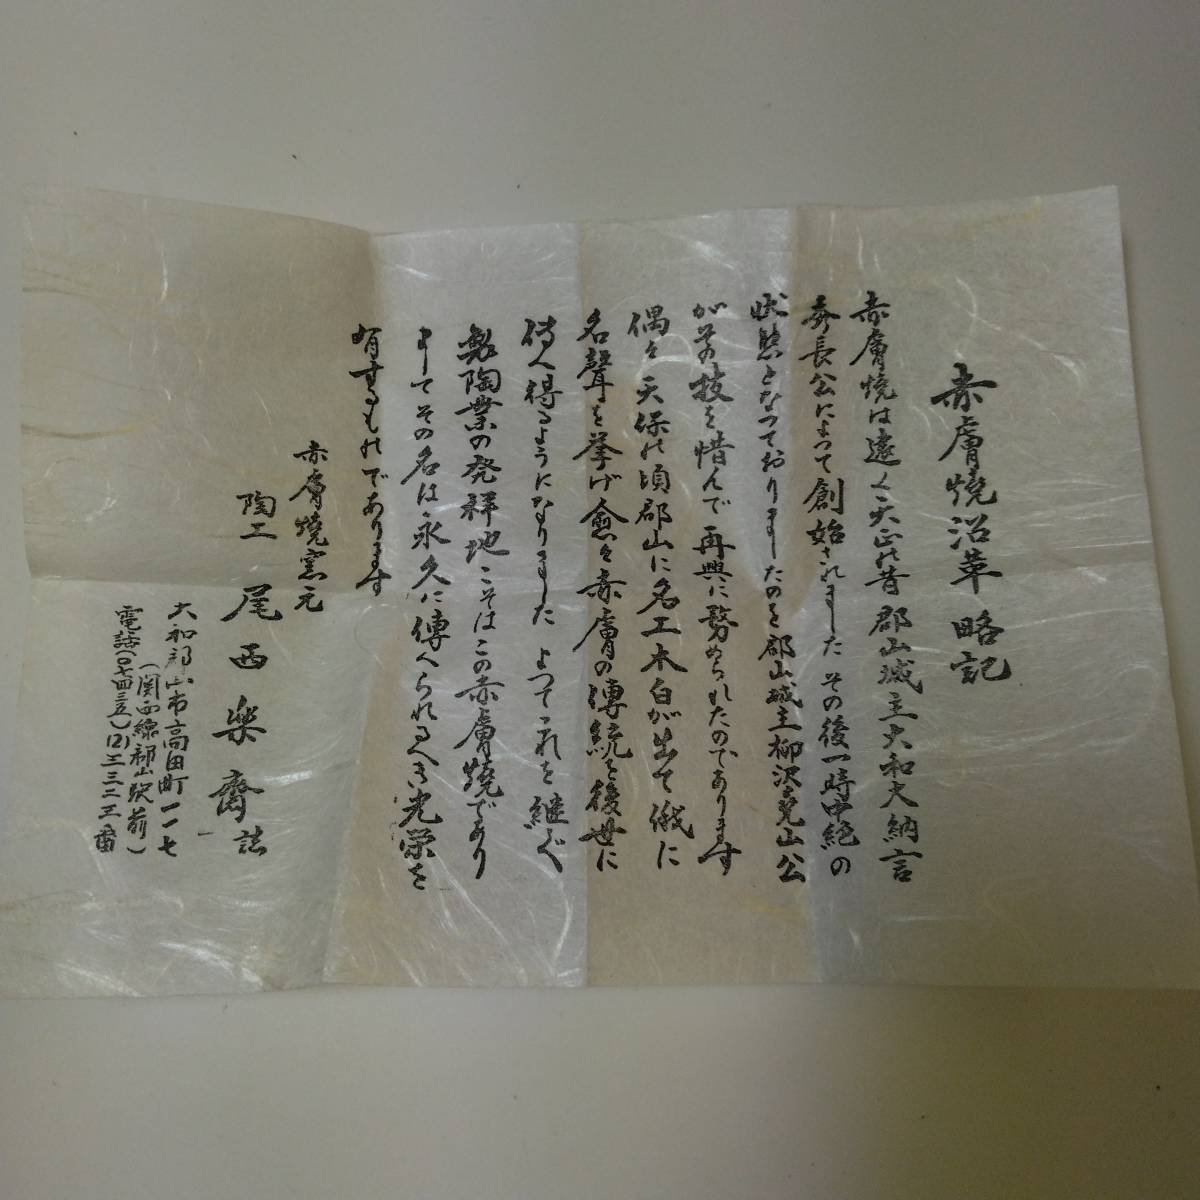 赤膚焼沿革略記
赤膚焼は遠く天正の昔 郡山城主大和大納言
秀長公によつて創始されました その後一時中絶の
状態となつておりましたのを郡山城主柳沢尭山公
がその技を惜んで再興に務められたのであります
偶々天保の頃郡山に名工木白が出て俄に
名聲を挙げ愈々赤膚の傳統を後世に
傳へ得るようになりました よつてこれを継ぐ
製陶業の発祥地こそはこの赤膚焼であり
ましてその名は永久に傳へられるべき光栄を
有するものであります
赤膚焼窯元
陶工 尾西楽斎 誌
大和郡山市高田町一一七
(関西線郡山駅前)
電話(〇七四三五)(2)三三三三番